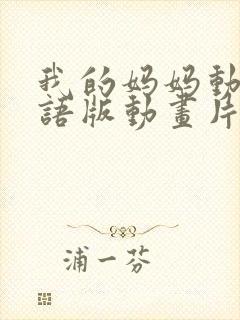 我的妈妈動
語版動畫片
浦一芬